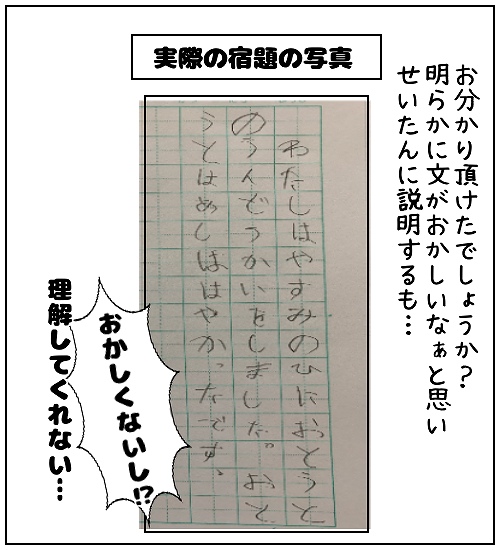 実際の宿題の写真
お分かり頂けたでしょうか?
明らかに文がおかしいなぁと思い
せいたんに説明するも…
わたしはやすみのひにおとうと
のうんどうかいをしました。おと
うとはめしははやかったです。
おかしくないし!?
理解してくれない…